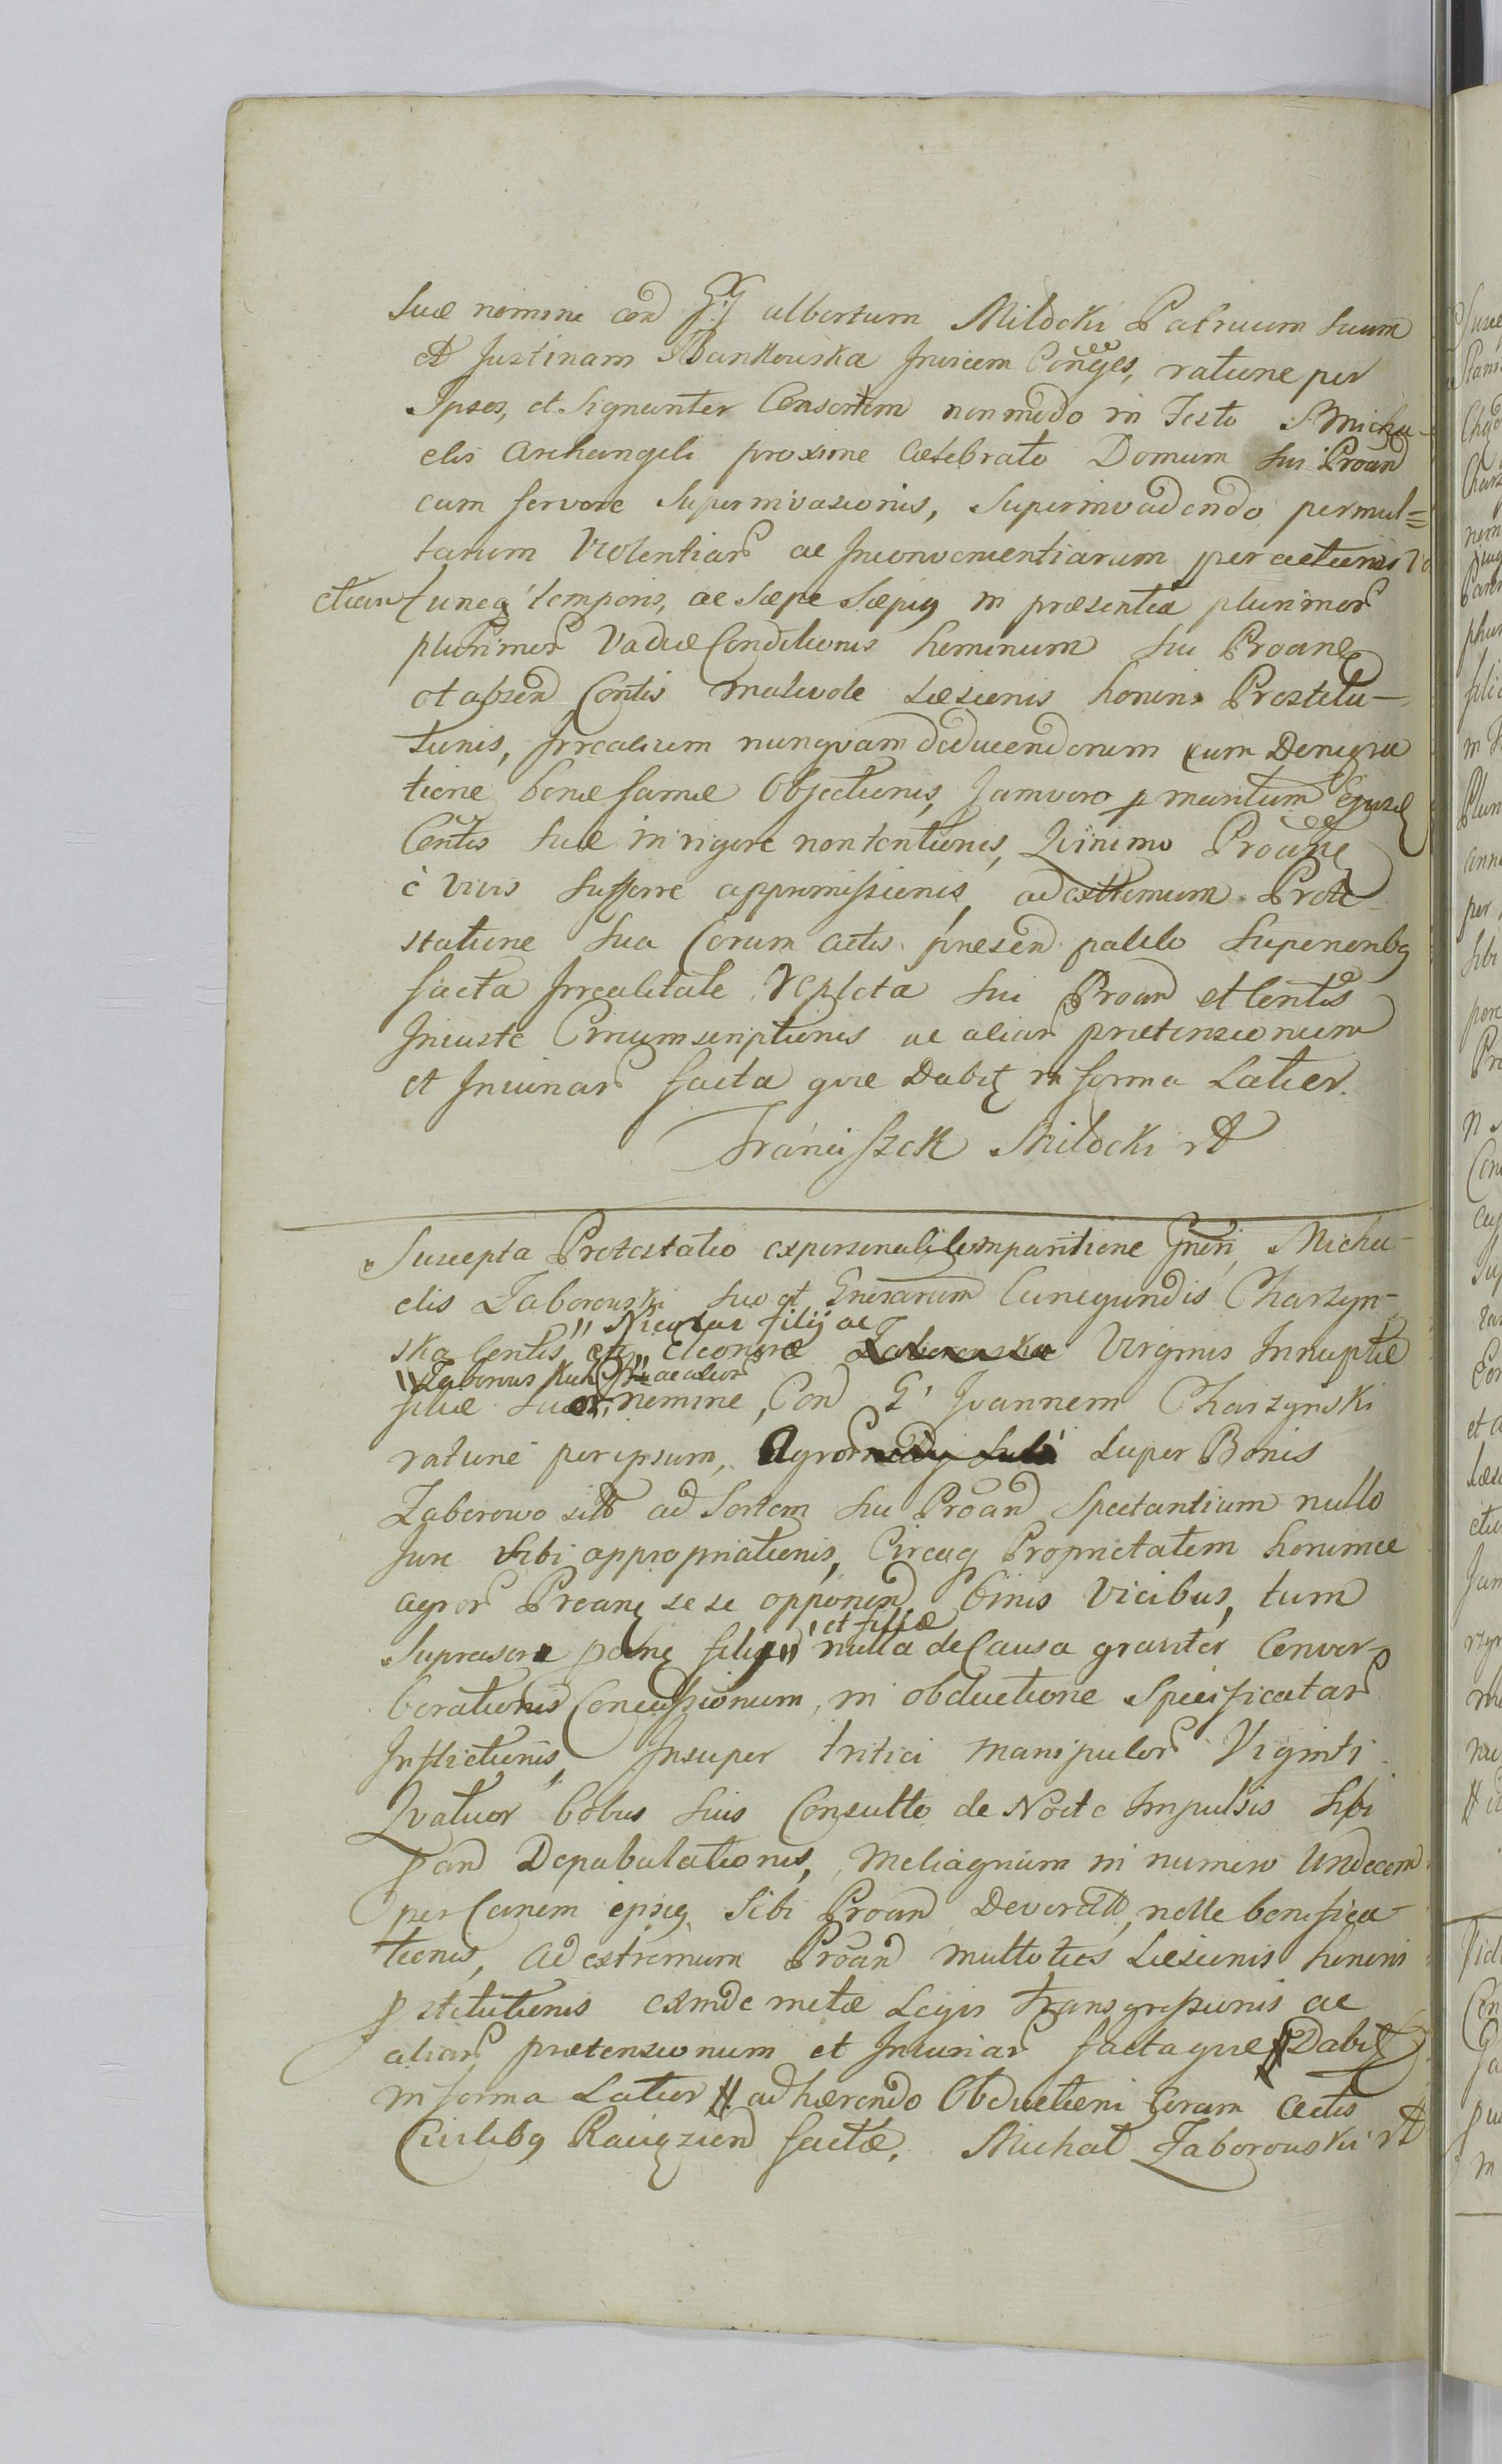 Suæ nomine con GG albertum Miłocki Patruum Suum
et Justinam Bankowska Invicem Conges, ratione per
Ipsos, et Signanter Consortem non modo in Festo S Micha-
elis Archangeli proxime Celebrato Domum Sui Proan
cum fervore Superinvasionis, Superinvadendo permul=
tarum Violentiar ac Inconvenientiarum peractionis
etiam tuncq temporis, ac Sæpe Sæpiq in præsentia plurimor
plurimor Variæ Conditionis hominum Sui Proane
et absen Contis malevole Læsionis honoris Prostitu-
tionis, Irrealium nunqvam deducendorum cum Denigra
tione bonæ famæ Objectionis, Jamvero p maritum Ejusd
Contis Suæ in rigore non tentionis, Qvinimo Proane
è Vivis Sufferre appromissionis, ad extremum Prote-
statione Sua Coram actis præsen palilo Superionbq
facta Irrealitate Repleta Sui Proan et Contis
Iniuste Circumscriptionis ac aliar prætensionum
et Iniuriar facta qvæ Dabit in forma Latior.
Franciszek Miłocki rA
Suscepta Protestatio ex personali Comparitione Gneri, Micha-
elis Zaborowski Suo et Gnerarum Cunegundis Charzyn-
" Nicolai filij ac
ska Contis, et Eleonoræ Zaborowska Virginis Innuptæ
"Zaborowskich " ac alior
filiæ Suor, nomine, Con G' Joannem Charzynski
ratione per ipsum, Agror Super Bonis
Zaborowo sitto ad Sortem Sui Proan Spectantium nullo
Jure Sibi appropriationis, Circaq Proprietatem horumce
agror Proane se se opponen, binis Vicibus, tum
" et filiæ
Suprascr filij " nulla de Causa graviter Conver-
berationis Concussionum, in obductione Specificatar
Inflictionis, Insuper tritici manipulor Viginti
Qvatuor bobus Suis Consulto de Nocte Impulsis Sibi
pan Depabulationis, Meliagrium in numero Undecem
per Canem ipsiq Sibi Proan Devorat, nolle bonifica-
tionis, ad extremum Proan multoties Læsionis honoris
pstitutionis exinde metæ Legis transgressionis ac
aliar prætensionum et Iniuriar facta qvæ # Dabit
in forma Latior # adhærendo Obductioni Coram actis
Civilibq Raigzien factæ. Michał Zaborowski rA